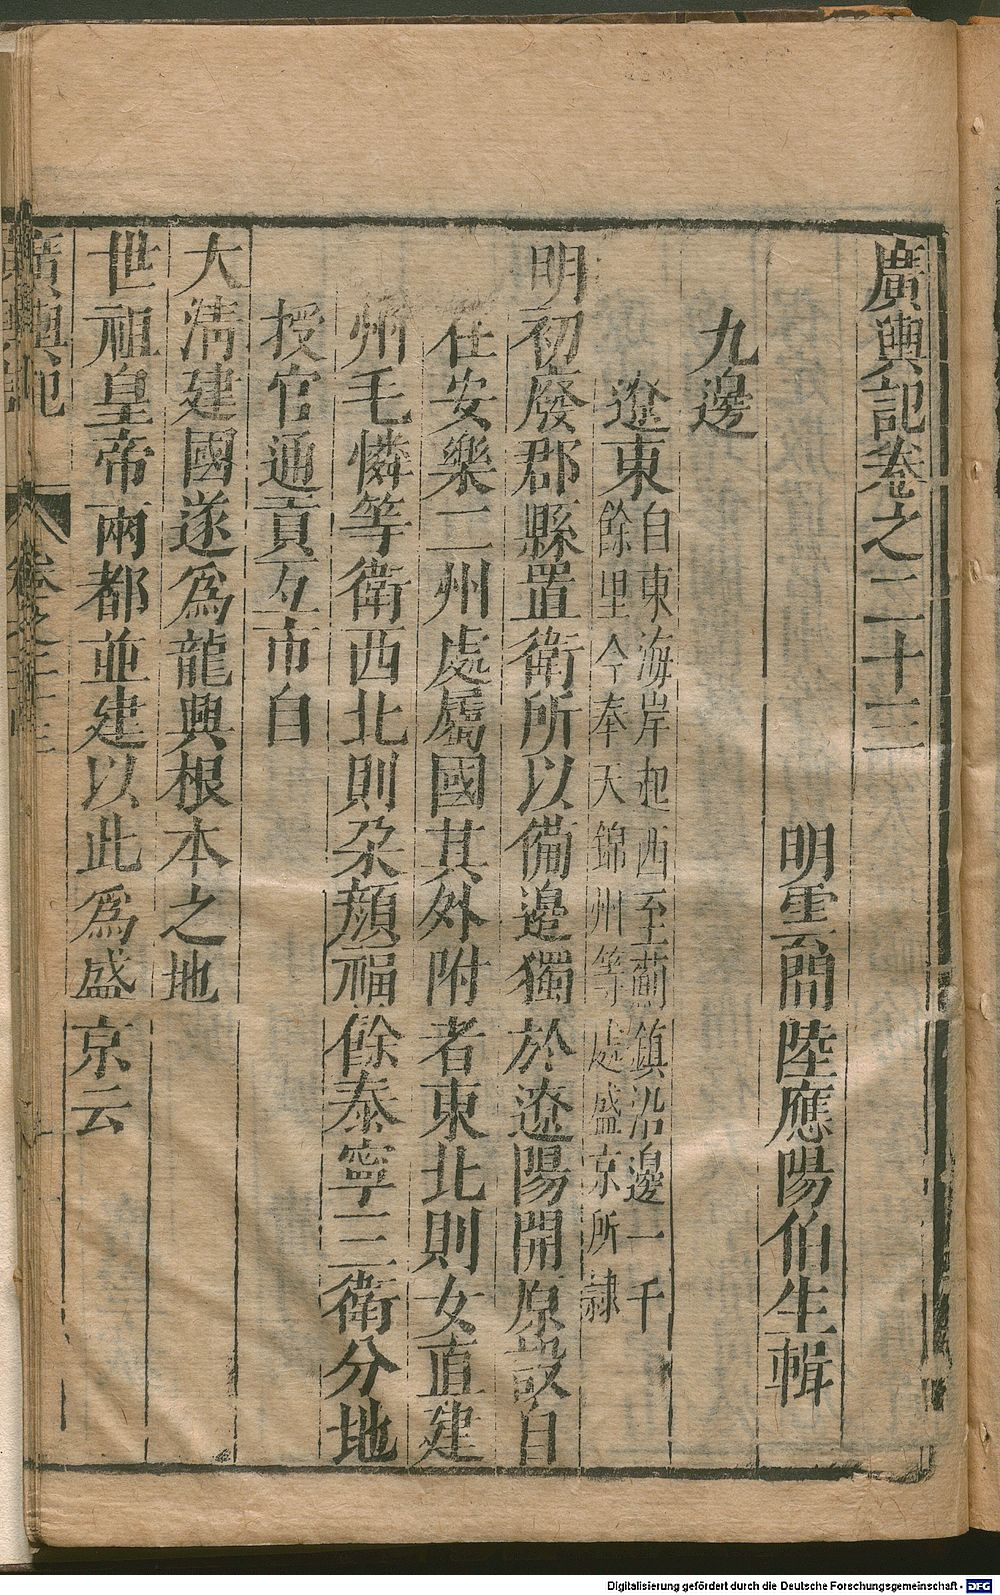 廣輿記卷之二十三
明雲間陸應陽伯生輯
九邊
遼東自東海岸起西至薊鎮沿邊一千
餘里今奉天錦州等處盛京所隸
明初廢郡縣置衛所以備邊獨於遼陽開原設自
在安樂二州處屬國其外附者東北則女直建
州毛憐等衛西北則朶顏福餘泰寧三衛分地
授官通貢互市自
大清建國遂爲龍興根本之地
世祖皇帝兩都並建以此爲盛京云
廣輿記
卷之二十三
Digitalisierung gefördert durch die Deutsche Forschungsgemeinschaft - DFG